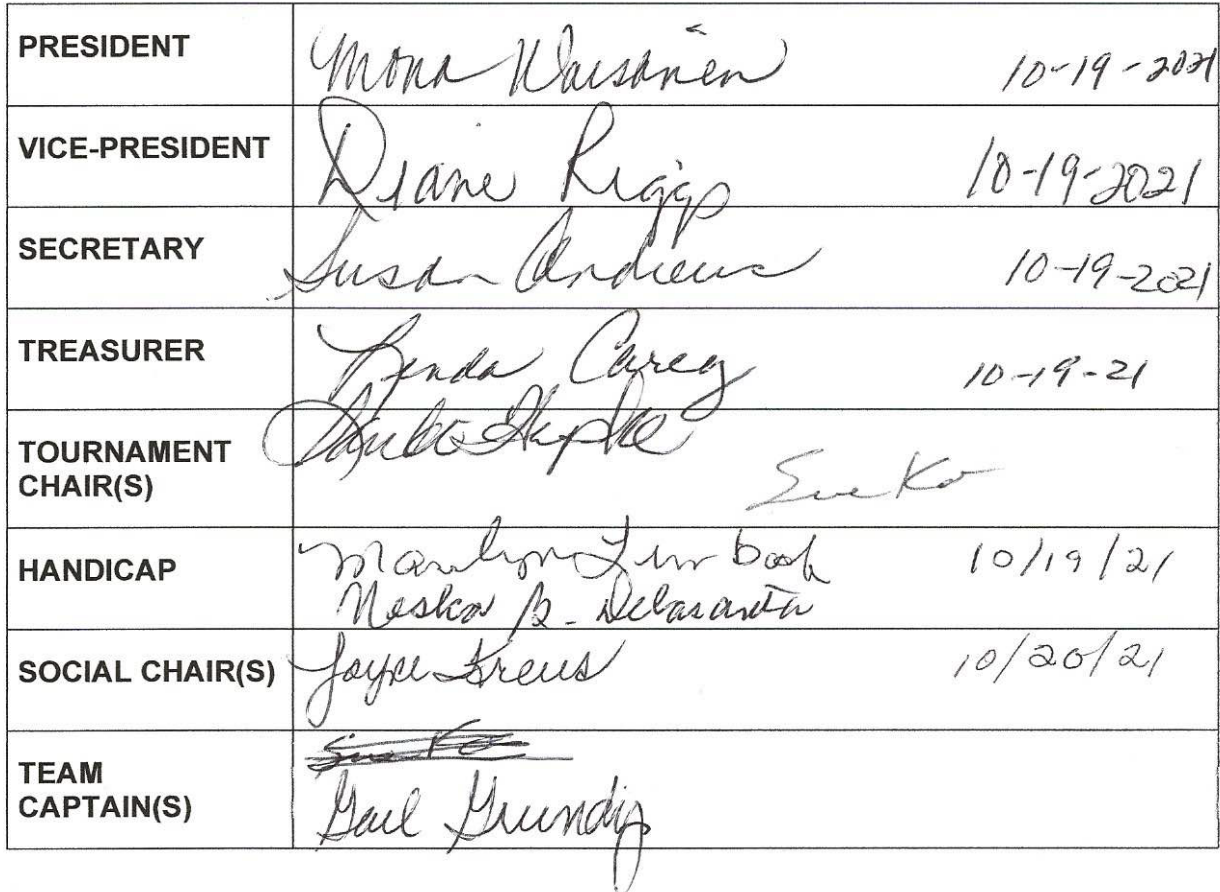 PRESIDENT Mona Waisanen 10-19-2021
VICE-PRESIDENT Diane Riggs 10-19-2021
SECRETARY Susan Andrews 10-19-2021
TREASURER Linda Carey 10-19-21
TOURNAMENT
CHAIR(S) Sue Ko
HANDICAP Marilyn 10/19/21
B. 
SOCIAL CHAIR(S) Joyce Kreus 10/20/21
Sue Ko
TEAM
CAPTAIN(S) Gail Grundy